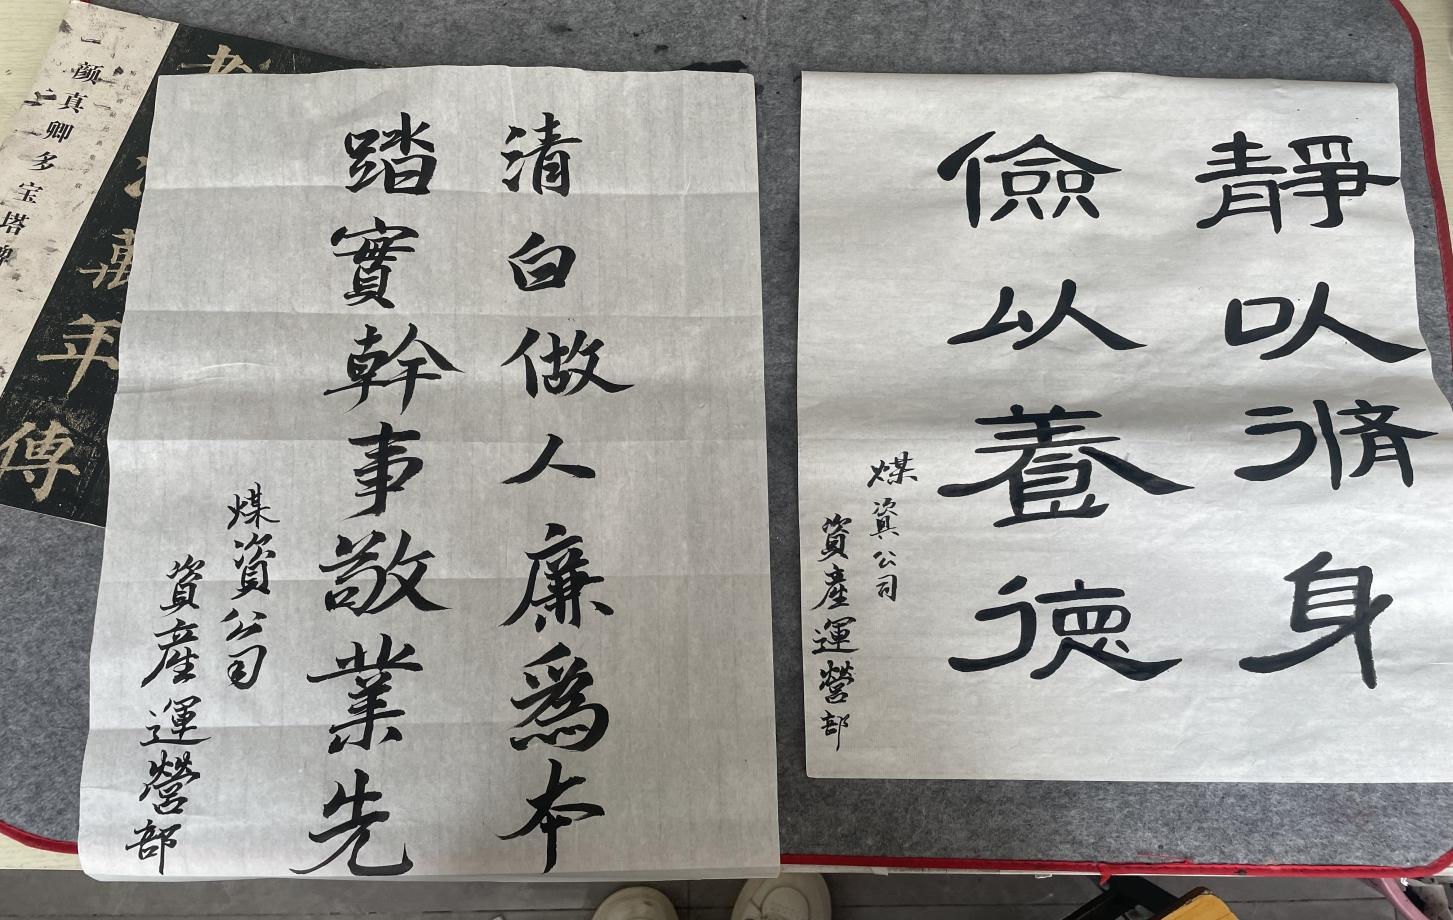 靜以脩身
儉以養德
煤資公司
資産運營部
清白做人廉爲本
踏實幹事敬業先
煤資公司
資産運營部
颜真卿多宝塔碑
萬年傳